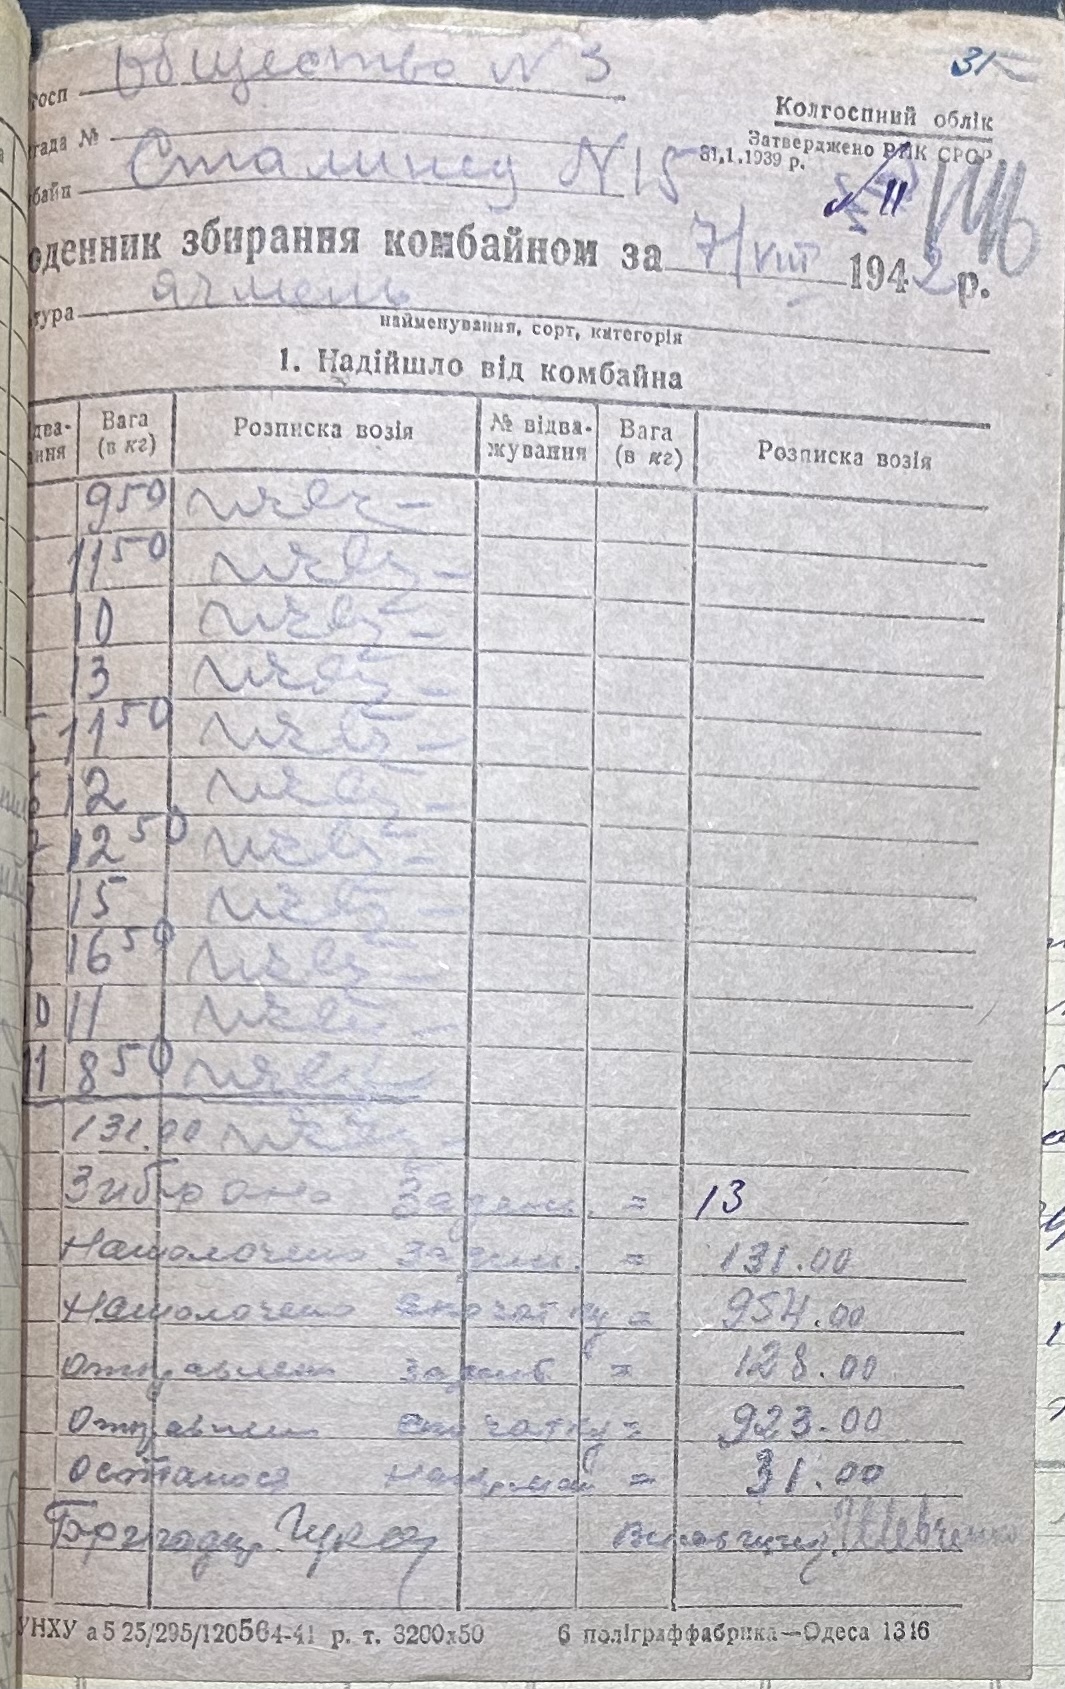 31
осп Общество N 3
Колгоспний облік
гада №
Затверджено РНК СРСР
31.1.1939 р.
байн Сталинец N 15
11
оденник збирання комбайном за 7/VIII 1942 р.
тура ячмень
найменування, сорт, категорія
1. Надійшло від комбайна
два-ання Вага (в кг) Розписка возія № відва-жування Вага (в кг) Розписка возія
9 50
11 50
10
13
5 11 50
6 12
7 12 50
15
16 50
0 11
11 8 50
131.00
Зибрано За день. = 13
Намолочено за день. = 131.00
Намолочено с початку = 954.00
Отправлено за день = 128.00
Отправлено с початку = 923.00
Осталося = 31.00
Бригадир Ваговщик Шевченко
УНХУ а 5 25/295/120564-41 р. т. 3200х50 6 поліграффабрика—Одеса 1316